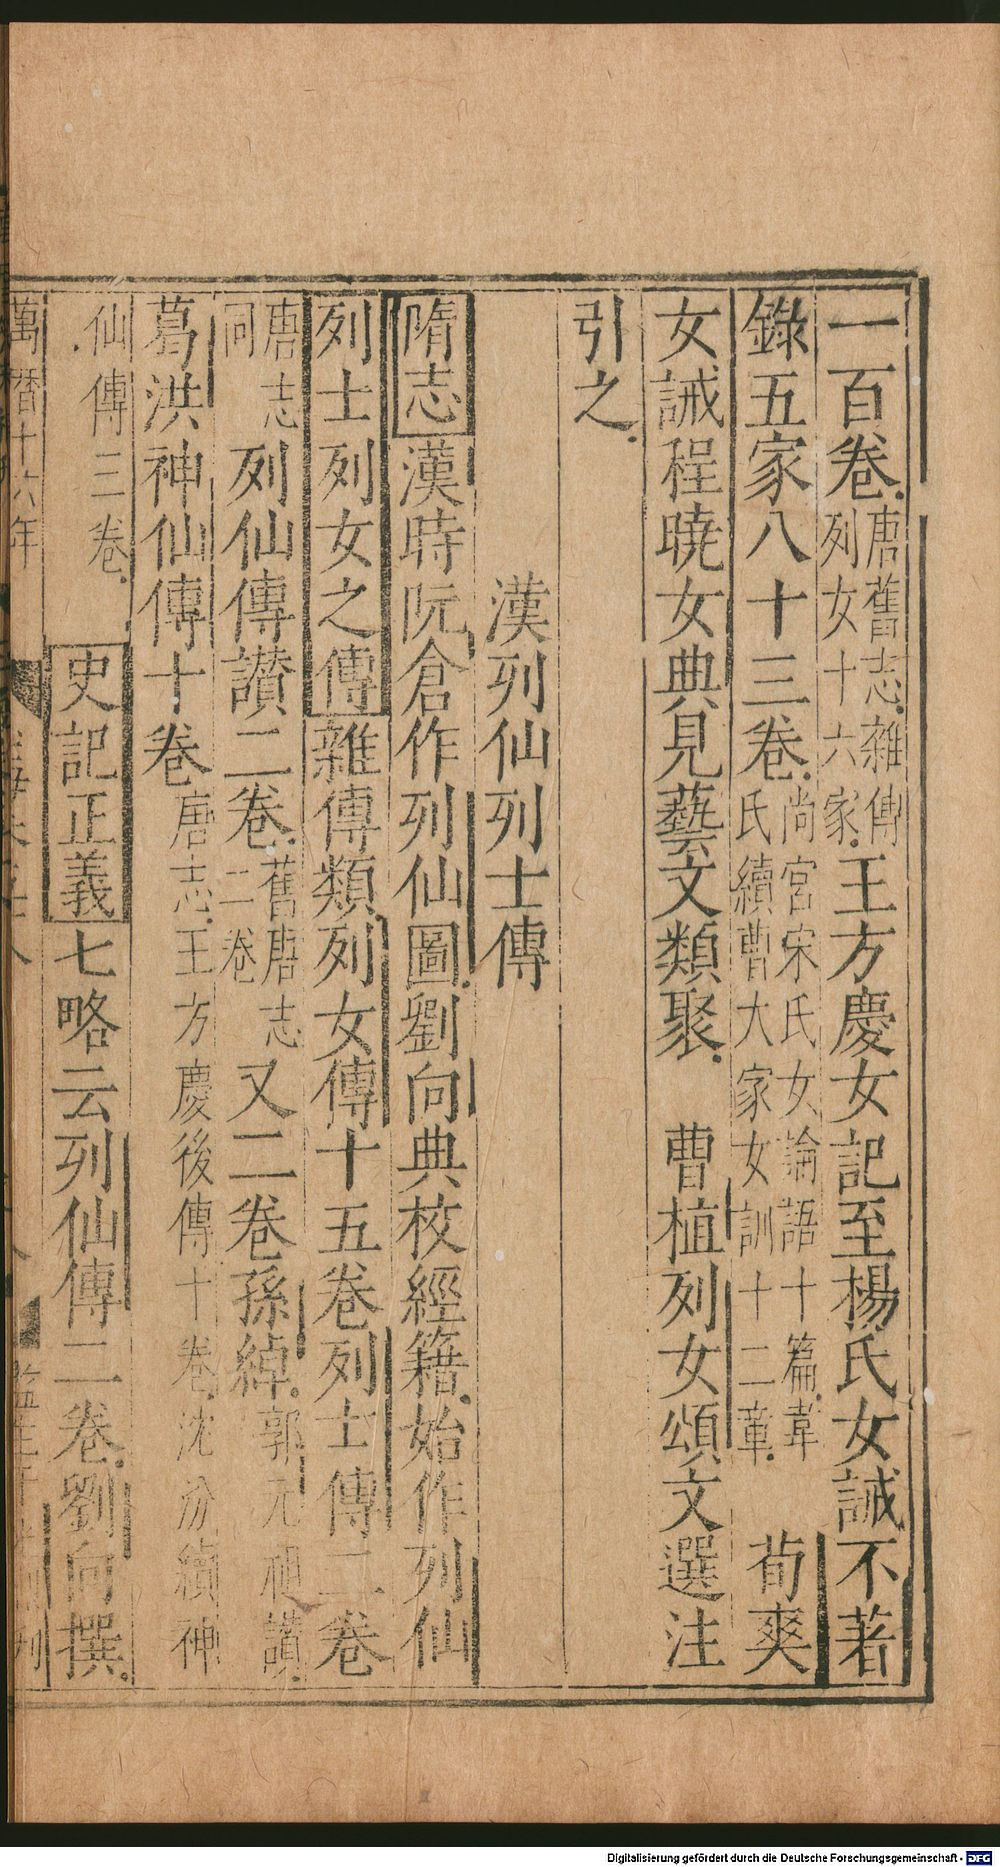 一百卷唐舊志雜傳列女十六家王方慶女記至楊氏女誡不著
錄五家八十三卷尚宮宋氏女論語十篇韋氏續曹大家女訓十二章 荀爽
女誡程曉女典見藝文類聚 曹植列女頌文選注
引之
漢列仙列士傳
隋志漢時阮倉作列仙圖劉向典校經籍始作列仙
列士列女之傳雜傳類列女傳十五卷列士傳二卷
唐志同列仙傳讃二卷舊唐志二卷又二卷孫綽郭元祖讃
葛洪神仙傳十卷唐志王方慶後傳十卷沈汾續神
仙傳三卷 史記正義七略云列仙傳二卷劉向撰
萬曆十六年
Digitalisierung gefördert durch die Deutsche Forschungsgemeinschaft - DFG